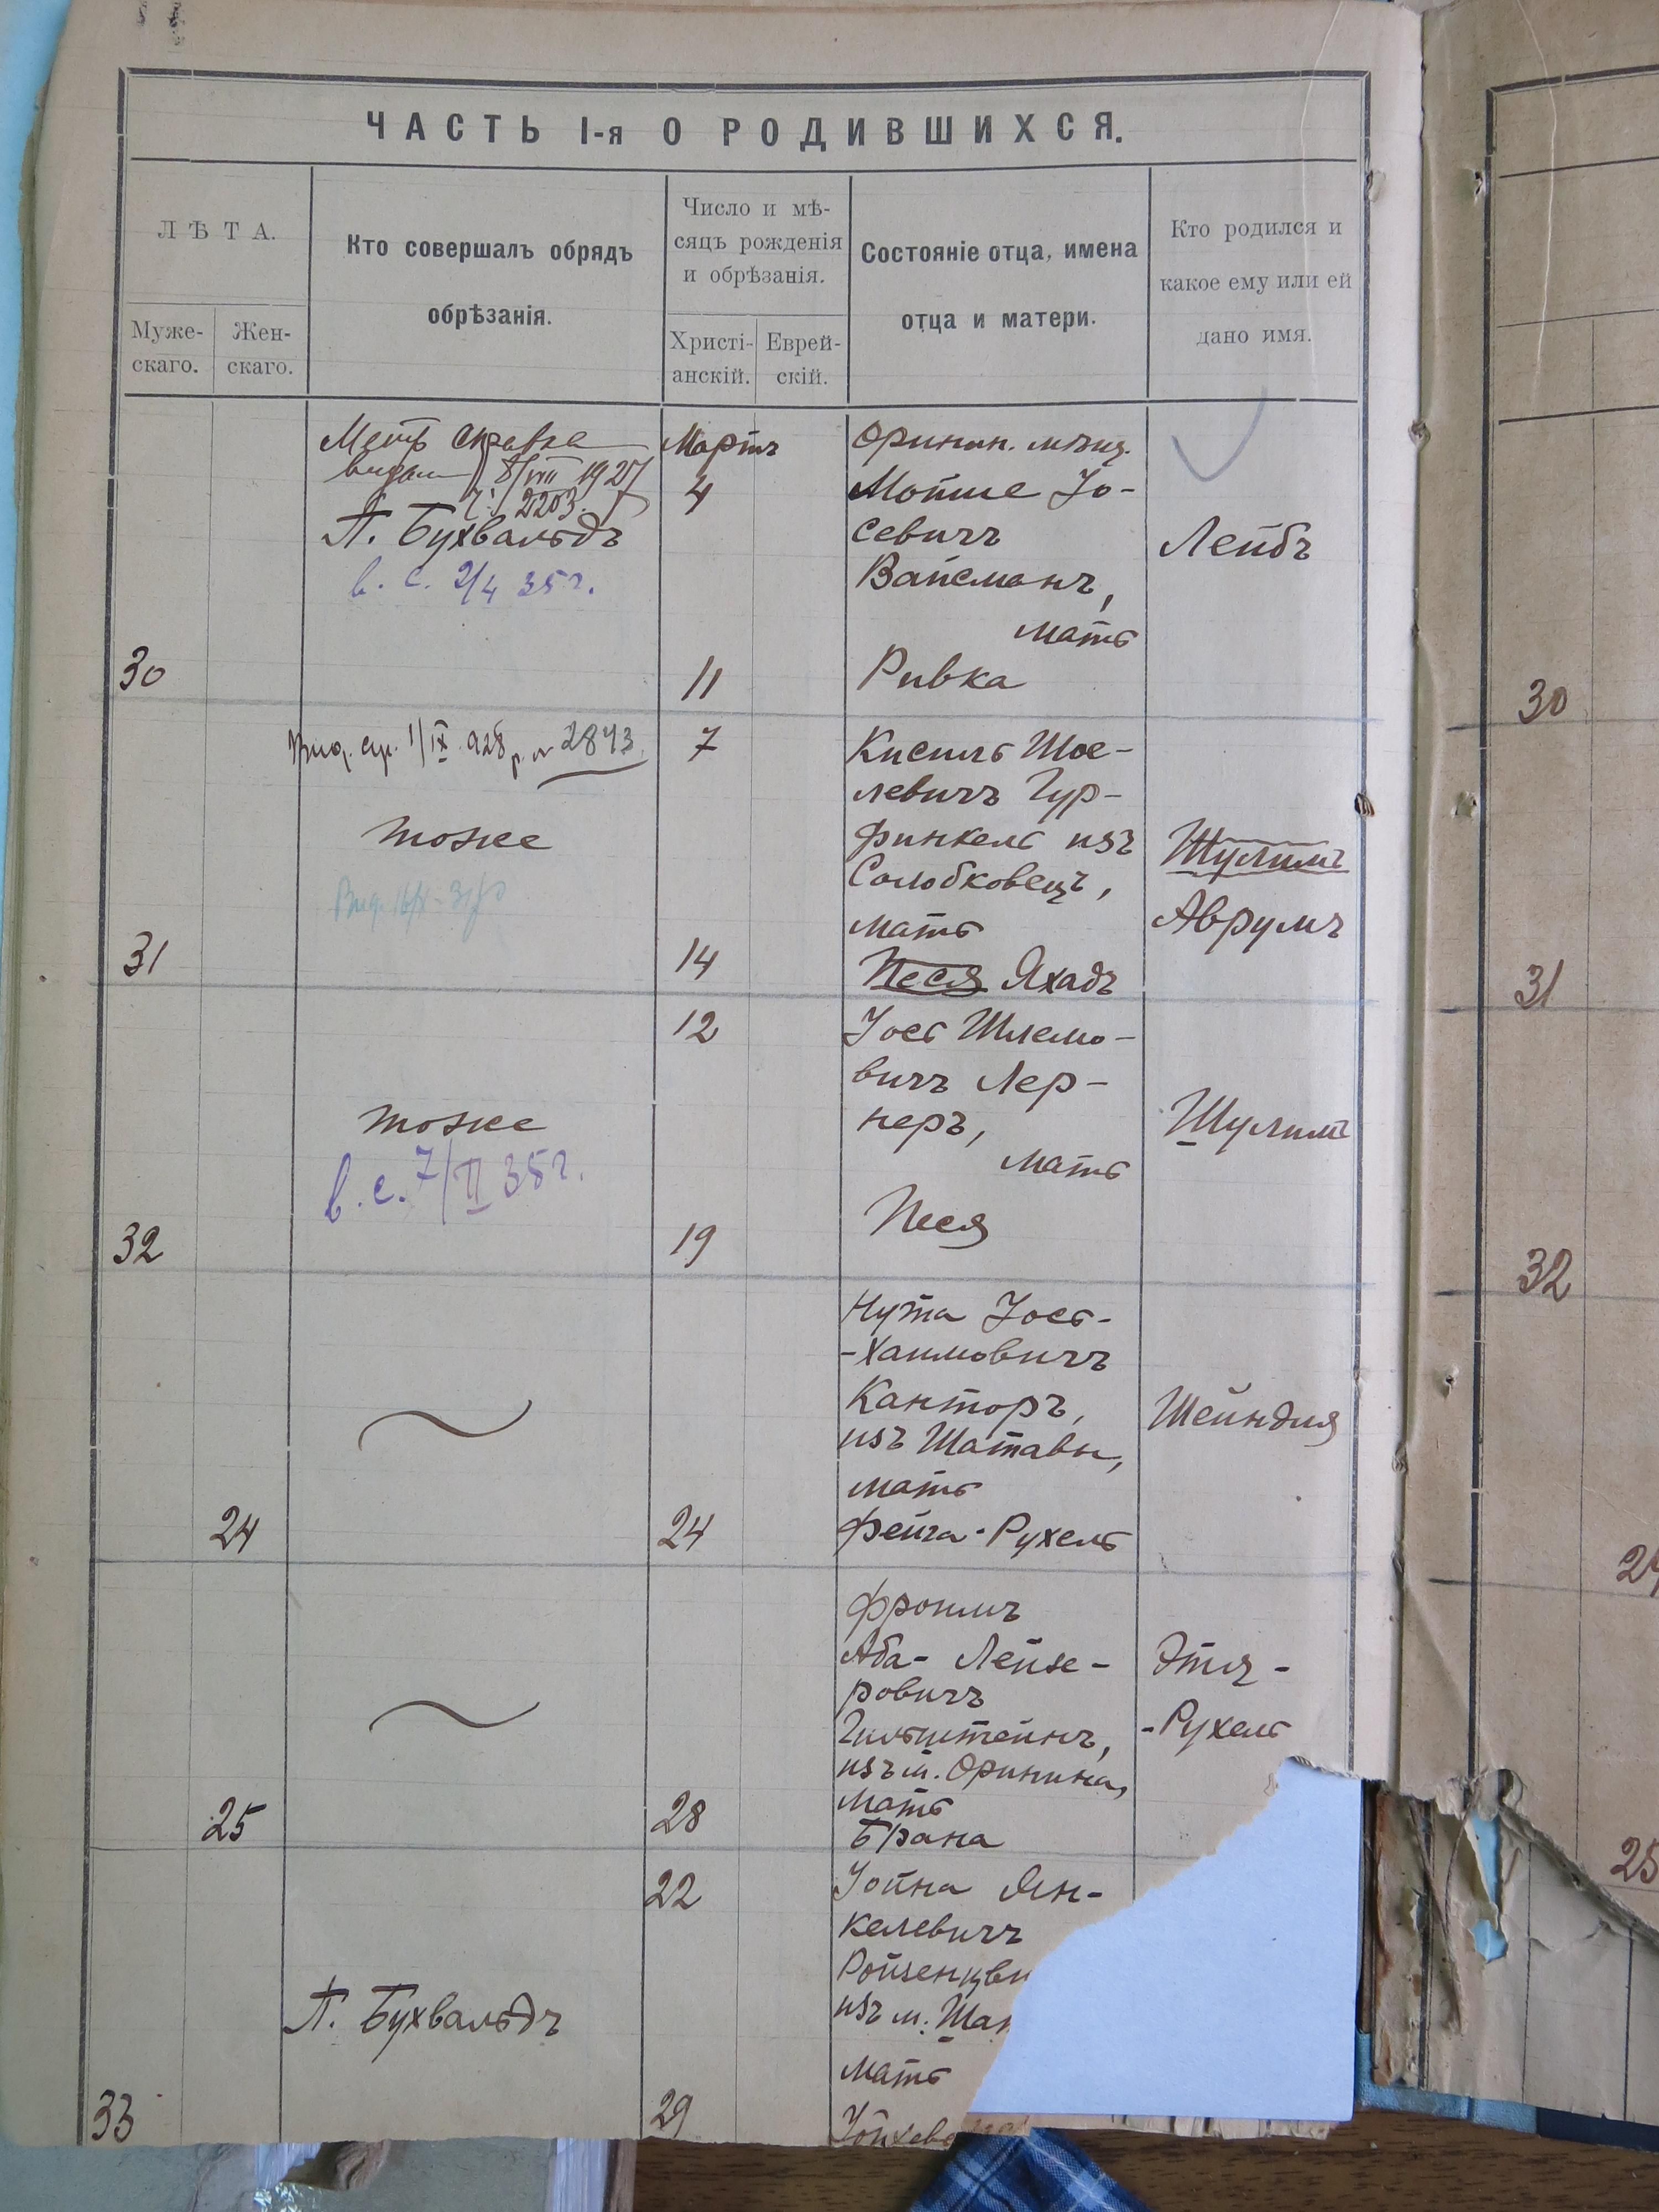 ЧАСТЬ I-я О РОДИВШИХСЯ.
ЛѢТА.
Муже-
скаго.
Жен-
скаго.
Кто совершалъ обрядъ
обрѣзанія.
Число и мѣ-
сяцъ рожденія
и обрѣзанія.
Христі-
анскій.
Еврей-
скій.
Состояніе отца, имена
отца и матери.
Кто родился и
какое ему или ей
дано имя.
30
Метр Справка
8/VIII 1927
2203
П. Бухвальдъ
в. с. 2/4 35 г.
Мартъ
4
11
Оринин. мѣщ.
Мотше Іо-
севичъ
Вайсманъ,
мать
Ривка
Лейбъ
31
Вид. 1/IX 928 р. № 2843
тоже
7
14
Кисиль Шое-
левичъ Гур-
финкель изъ
Солобковецъ,
мать
Песя Яхадъ
Шулимъ
Аврумъ
32
тоже
в. с. 7/II 35 г.
12
19
Іось Шлемо-
вичъ Лер-
неръ,
мать
Песя
Шулимъ
24
24
Нута Іось-
-Хаимовичъ
Канторъ,
изъ Шатавы,
мать
Фейга-Рухель
Шейндля
25
28
Фроимъ
Аба-Лейзе-
ровичъ
Гильштейнъ,
изъ м. Оринина,
мать
Брана
Этя-
-Рухель
33
П. Бухвальдъ
22
29
Іойна Ян-
келевичъ
Ройзенцви
изъ м. Шат
мать
30
31
32
24
25